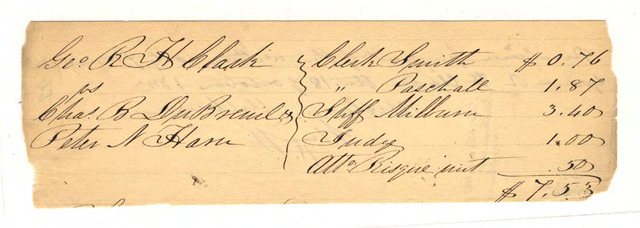 Geo. R H Clark
vs
Chas. B DuBreuil &
Peter N Ham
Clerk Smith $ 0.76
" Paschall 1.87
Shff Milburn 3.40
Judge 1.00
Atto. Risque .50
$ 7.53